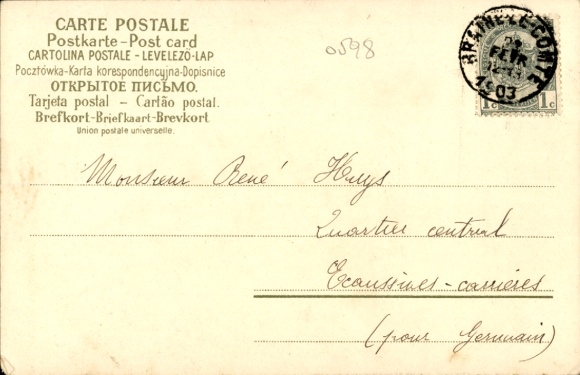 CARTE POSTALE
Postkarte – Post card
CARTOLINA POSTALE – LEVELEZÖ-LAP
Pocztówka-Karta korespondencyjna-Dopisnice
ОТКРЫТОЕ ПИСЬМО.
Tarjeta postal – Cartão postal.
Brefkort-Briefkaart-Brevkort
Union postale universelle.
0598
BRAINE-LE-COMTE
FEVR
1903
1c 1c
Monsieur René Huys
Quartier central
Ecaussines-carrières
(pour Germain)